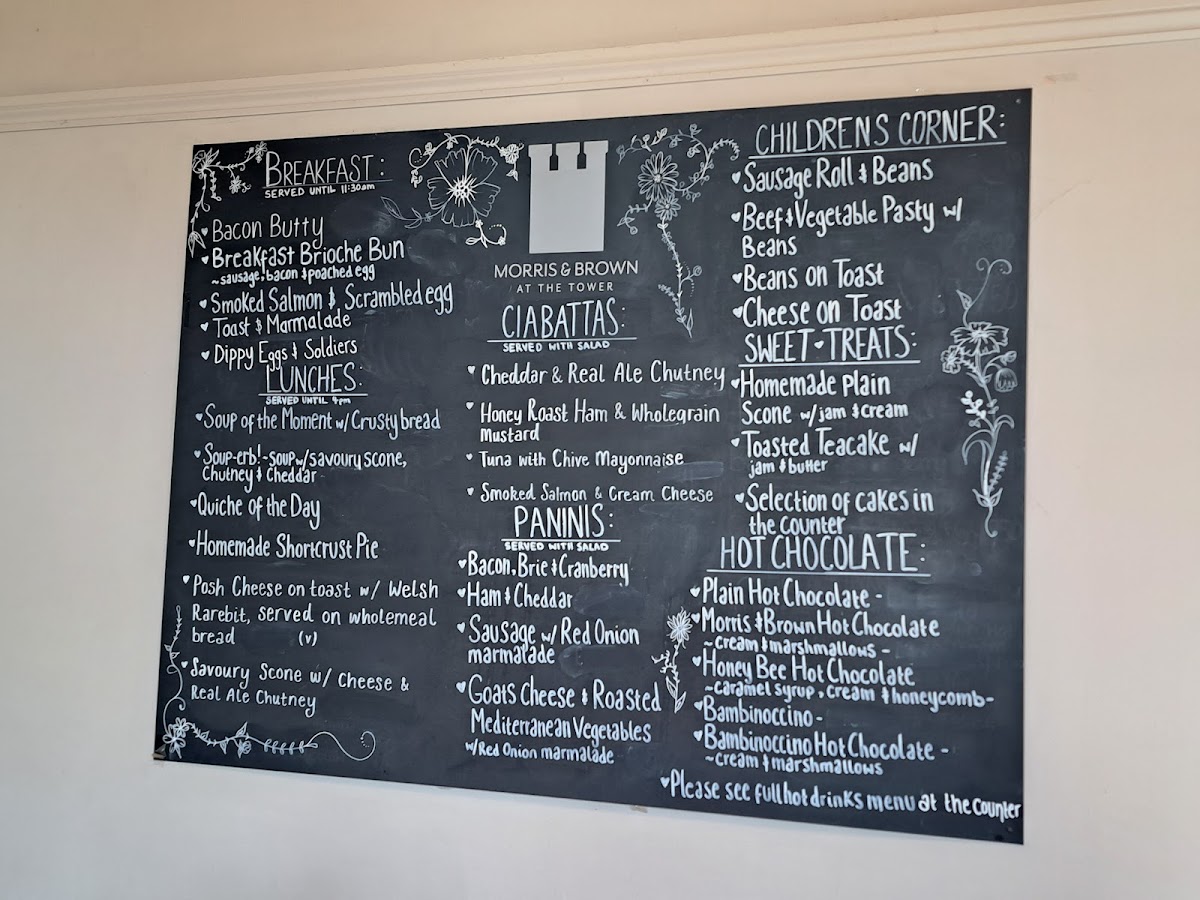 BREAKFAST:
SERVED UNTIL 11:30am
Bacon Butty
Breakfast Brioche Bun
~sausage, bacon & poached egg
Smoked Salmon & Scrambled egg
Toast & Marmalade
Dippy Eggs & Soldiers
LUNCHES:
SERVED UNTIL 4pm
Soup of the Moment w/ Crusty bread
Soup-erb! ~ soup w/ savoury scone,
Chutney & Cheddar
Quiche of the Day
Homemade Shortcrust Pie
Posh Cheese on toast w/ Welsh
Rarebit, served on wholemeal
bread (v)
Savoury Scone w/ cheese &
Real Ale Chutney
MORRIS & BROWN
AT THE TOWER
CIABATTAS:
SERVED WITH SALAD
Cheddar & Real Ale Chutney
Honey Roast Ham & Wholegrain
Mustard
Tuna with Chive Mayonnaise
Smoked Salmon & Cream Cheese
PANINIS:
SERVED WITH SALAD
Bacon, Brie & Cranberry
Ham & Cheddar
Sausage w/ Red Onion
marmalade
Goats Cheese & Roasted
Mediterranean Vegetables
w/ Red Onion marmalade
CHILDRENS CORNER:
Sausage Roll & Beans
Beef & Vegetable Pasty w/
Beans
Beans on Toast
Cheese on Toast
SWEET TREATS:
Homemade plain
Scone w/ jam & cream
Toasted Teacake w/
jam & butter
Selection of cakes in
the counter
HOT CHOCOLATE:
Plain Hot Chocolate -
Morris & Brown Hot Chocolate
~cream & marshmallows -
Honey Bee Hot Chocolate
~caramel syrup, cream & honeycomb-
Bambinoccino -
Bambinoccino Hot Chocolate -
~cream & marshmallows
Please see full hot drinks menu at the counter